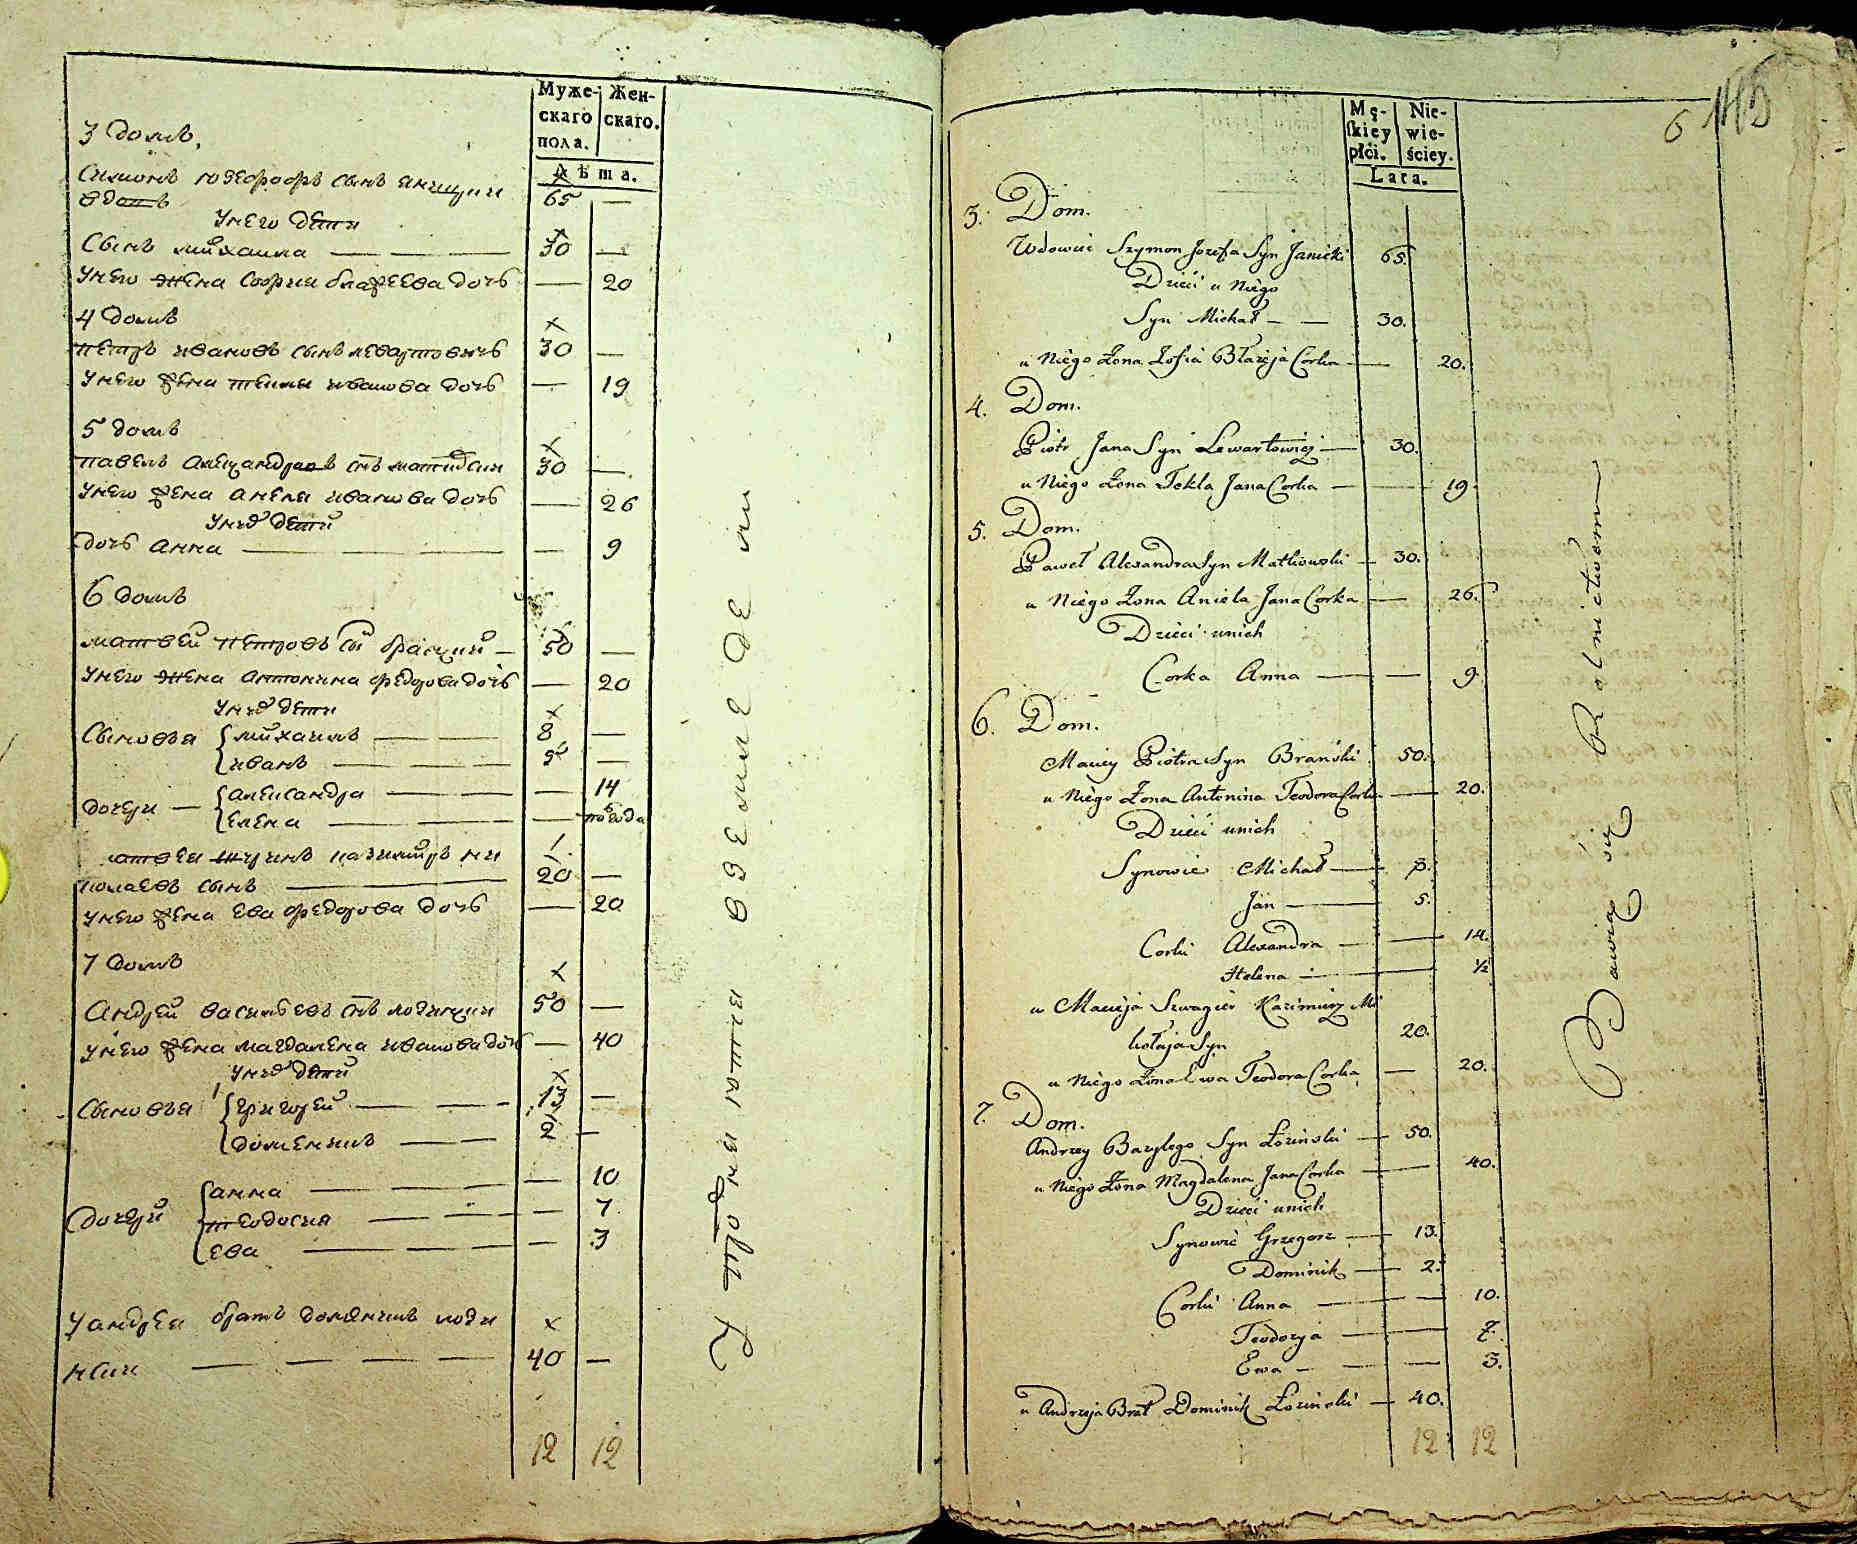 Муже- Жен-
скаго скаго.
пола.
Лѣта.
3 домъ.
Симонъ Юзефофъ сынъ Яницкий
вдовъ 65 —
У него дети
Сынъ Михаила — — — 30 —
У него жена София Блажеева дочь — 20
4 домъ
Петръ Ивановъ сынъ Левартовичь 30 —
У него жена Текля Иванова дочь — 19
5 домъ
Павелъ Александровъ снъ 30 —
У него жена Анеля Иванова дочь — 26
У них дети
Дочь Анна — — 9
6 домъ
Матвей Петровъ сы Бранский — 50 —
У него жена Антонина Федорова дочь — 20
У них дети
Сыновья Михаилъ — — 8 —
Иванъ — — 5 —
Дочери — Александра — — — 14
Елена — — — полгода
Казимиръ Ни
колаевъ сынъ — 20 —
У него жена Ева Федорова дочь — 20
7 домъ
Андрей Васильевъ снъ Лозинский 50 —
У него жена Магдалена Иванова дочь — 40
У них дети
Сыновья Григорей — — 13 —
Доменикъ — — 2 —
Дочери Анна — — 10
Теодосия — — — 7
Ева — — — 3
У Андрея братъ Доменикъ Лози
нский — — — — 40 —
12 12
Хлебопашествомъ
6
Mę- Nie-
skiey wie-
płći. ściey.
Lata.
3. Dom.
Wdowiec Szymon Jozefa Syn Janicki 65.
Dzieci u Niego
Syn Michał — — 30.
u Niego Żona Zofia Błażeja Corka — 20.
4. Dom.
Piotr Jana Syn Lewartowicz — 30.
u Niego Żona Tekla Jana Corka — — 19.
5. Dom.
Paweł Alexandra Syn Matkowski — 30.
u Niego Żona Aniela Jana Corka — 26.
Dzieci u nich
Corka Anna — — 9.
6. Dom.
Maciey Piotra Syn Brański 50.
u Niego Żona Antonina Teodora Corka — 20.
Dzieci u nich
Synowie Michał — 8.
Jan — 5.
Corki Alexandra — — 14.
Helena — — ½
u Macieja Szwagier Kazimierz Mi
kołaja Syn 20.
u Niego Żona Ewa Teodora Corka — 20.
7. Dom.
Andrzey Bazylego Syn Łoziński — 50.
u Niego Żona Magdalena Jana Corka — 40.
Dzieci u nich
Synowie Grzegorz — 13.
Dominik — 2.
Corki Anna — — 10.
Teodozja — — 7.
Ewa — — — 3.
u Andrzeja Brat Dominik Łoziński — 40.
12 12
Bawią się Rolnictwom